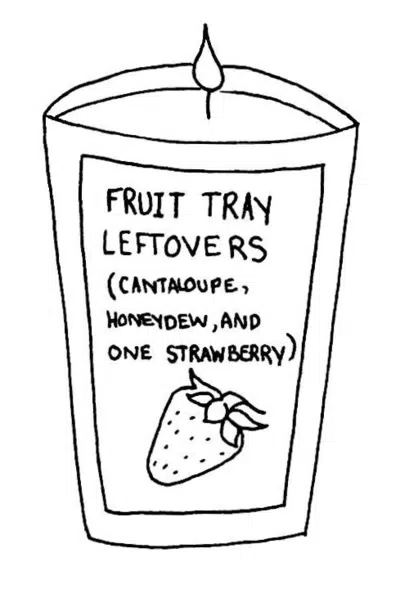 FRUIT TRAY
LEFTOVERS
(CANTALOUPE,
HONEYDEW, AND
ONE STRAWBERRY)